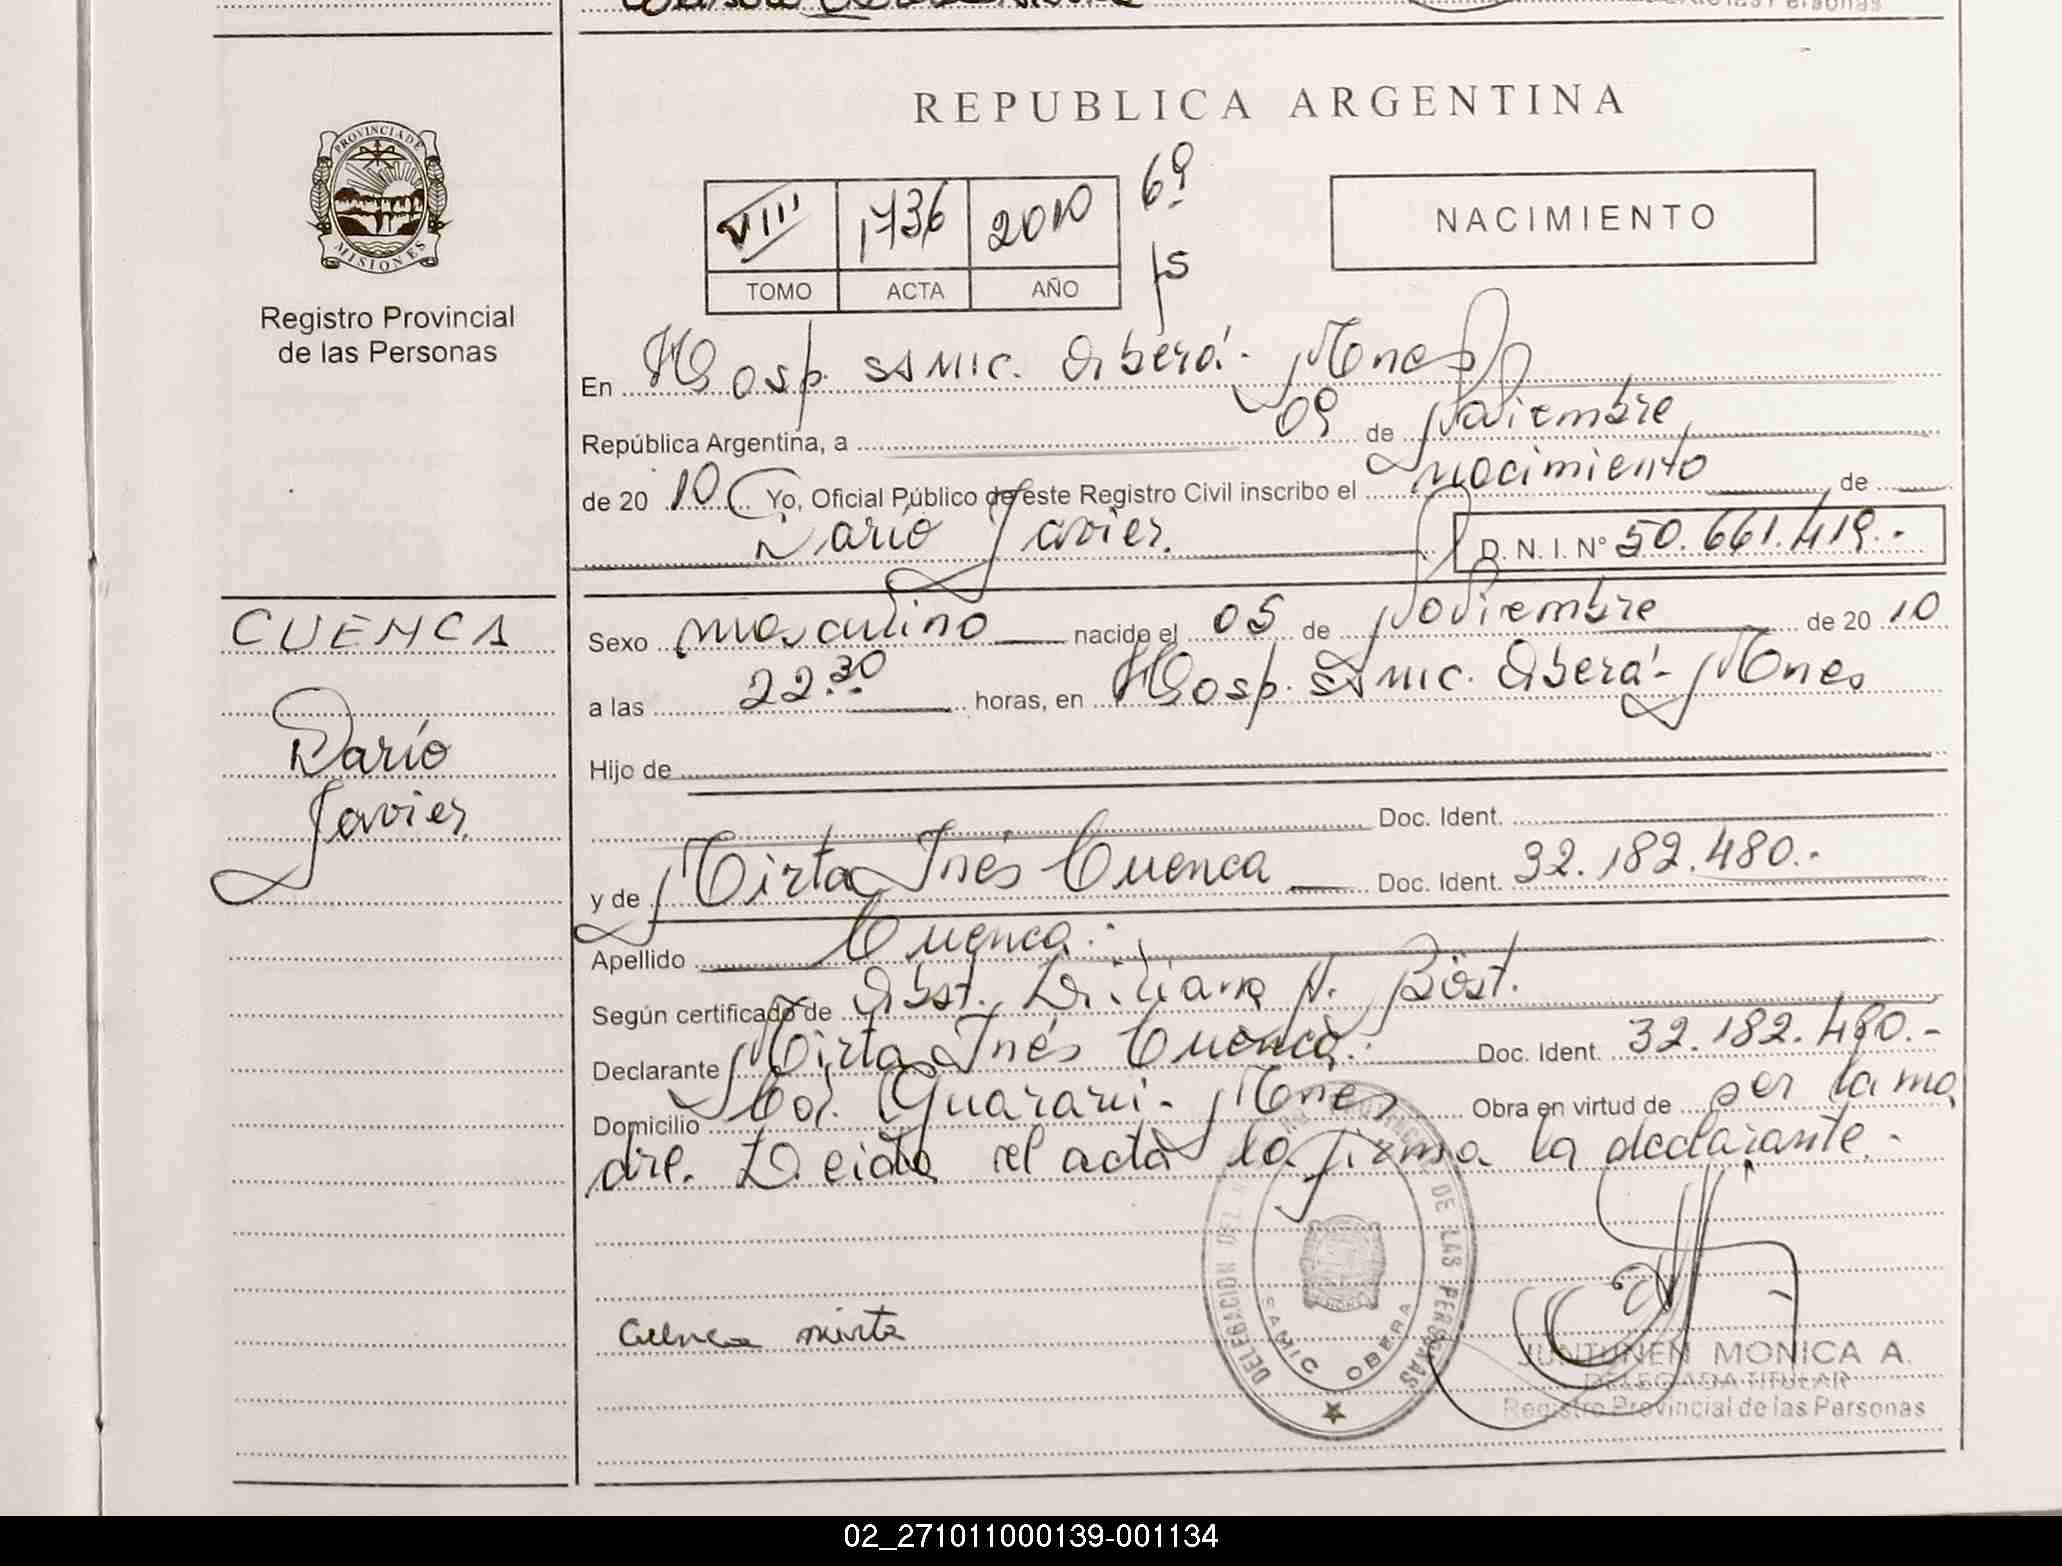 REPUBLICA ARGENTINA
PROVINCIA DE
MISIONES
Registro Provincial
de las Personas
VIII 1736 2010 6º
TOMO ACTA AÑO
NACIMIENTO
En Hosp. SAMIC. Oberá- Mnes
República Argentina, a 09 de Noviembre
de 20 10 Yo, Oficial Público de este Registro Civil inscribo el nacimiento de
Darío Javier. D. N. I. Nº 50.661.419.-
CUENCA
Darío
Javier
Sexo masculino nacido el 05 de Noviembre de 20 10
a las 22.30 horas, en Hosp. SAMIC. Oberá- Mnes
Hijo de
Doc. Ident.
y de Mirta Inés Cuenca Doc. Ident. 32.182.480.-
Apellido Cuenca.-
Según certificado de Obst. Liliana N. Bost.
Declarante Mirta Inés Cuenca.- Doc. Ident. 32.182.480.-
Domicilio Col. Guaraní- Mnes Obra en virtud de ser la ma
dre. Leida el acta la firma la declarante.-
Cuenca mirta
DELEGACION DEL DE LAS PERSONAS
SAMIC OBERA
JUNTUNEN MONICA A.
DELEGADA TITULAR
Registro Provincial de las Personas
02_271011000139-001134